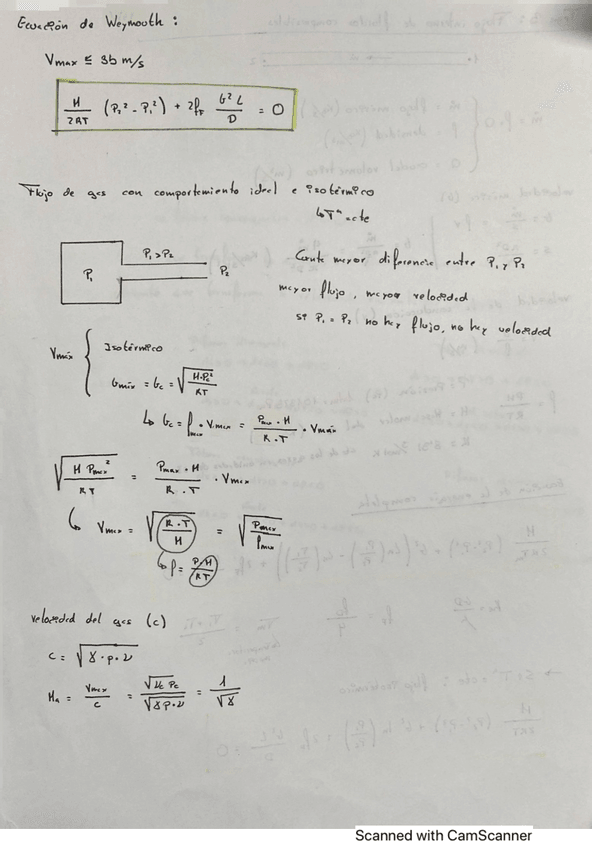 Ecuación de Weymouth :
Vmax ≤ 36 m/s
M/2RT (P₂² - P₁²) + 2fF G² L/D = 0
Flujo de gas con comportamiento ideal e isotérmico
↳ Tª = cte
P₁ > P₂
P₁
P₂
Cuanta mayor diferencia entre P₁ y P₂
mayor flujo, mayor velocidad
si P₁ = P₂ no hay flujo, no hay velocidad
Vmáx { Isotérmico
Gmáx = Gc = √(M·Pc²/RT)
↳ Gc = ρmax · Vmax = Pmax · M/R · T · Vmáx
√(M Pmax²/RT) = Pmax · M/R · T · Vmax
↳ Vmax = √(R · T/M) = √(Pmax/ρmax)
↳ ρ = P·M/RT
Velocidad del gas (c)
c = √(γ · P · ν)
Ma = Vmax/c = √(νc Pc)/√(γ P · ν) = 1/√γ
Scanned with CamScanner